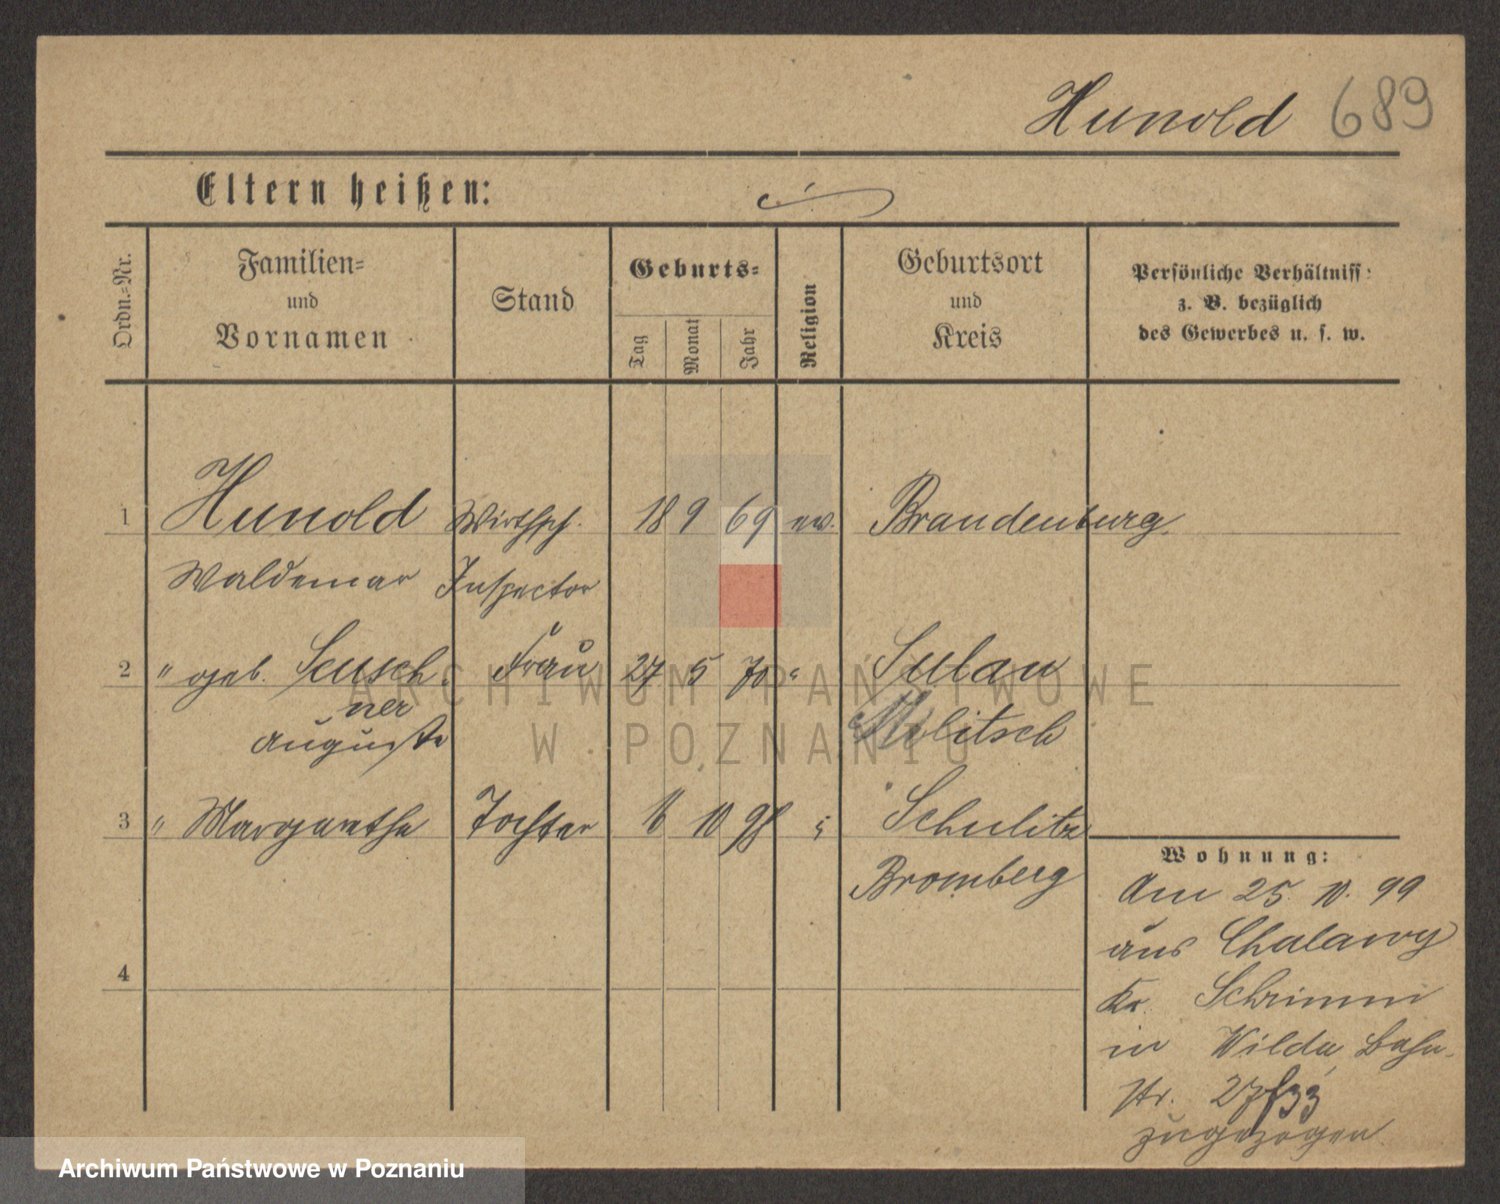 Hunold 689
Eltern heißen:
Ordn.-Nr.
Familien-
und
Vornamen
Stand
Geburts-
Tag
Monat
Jahr
Religion
Geburtsort
und
Kreis
Persönliche Verhältniss
z. B. bezüglich
des Gewerbes u. s. w.
1 Hunold Wirthsch. 18 9 69 ev. Brandenburg.
Waldemar Inspector
2 " geb. Leusch- Frau 27 5 70 " Sulau
ner Militsch
Auguste
3 " Margarethe Tochter 8 10 98 " Schulitz
Bromberg
4
Wohnung:
Am 25. 10. 99
aus Chalawy
Kr. Schrimm
in Wilda, Bahn-
str. 27/33
zugezogen.
ARCHIWUM PAŃSTWOWE
W POZNANIU
Archiwum Państwowe w Poznaniu